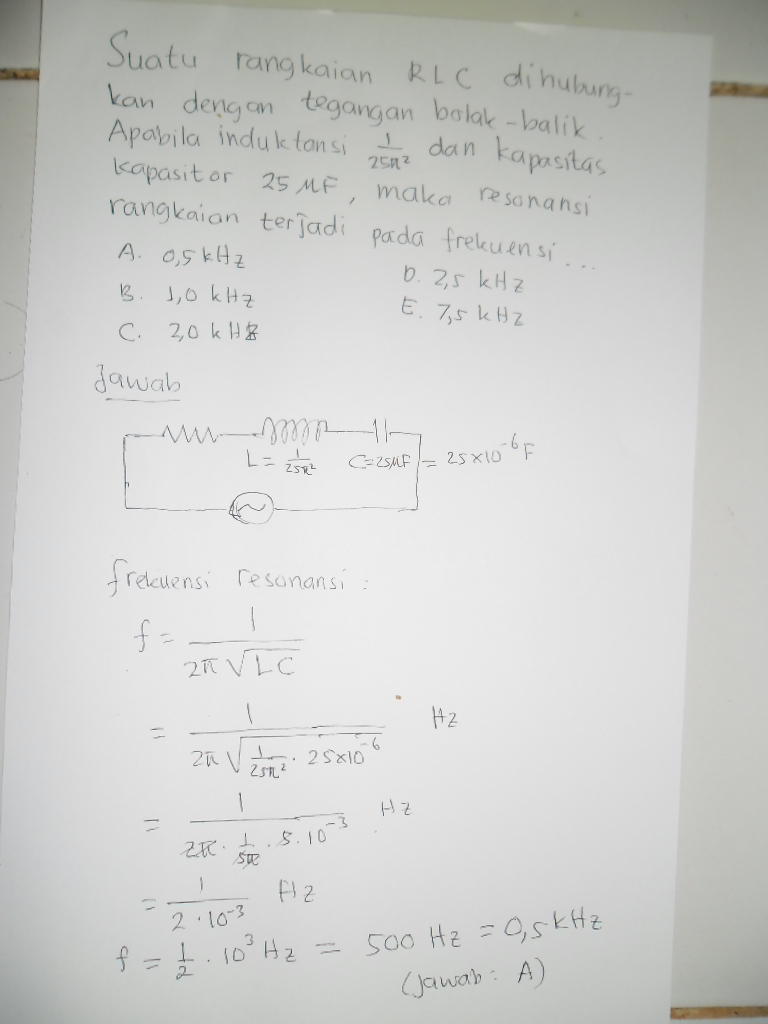 Suatu rangkaian RLC dihubung-
kan dengan tegangan bolak-balik.
Apabila induktansi 1/25π² dan kapasitas
kapasitor 25 μF, maka resonansi
rangkaian terjadi pada frekuensi...
A. 0,5 kHz D. 2,5 kHz
B. 1,0 kHz E. 7,5 kHz
C. 2,0 kHz
Jawab
L = 1/25π² C=25μF = 25x10⁻⁶ F
frekuensi resonansi :
f = 1/(2π√LC)
= 1/(2π√(1/25π² · 25x10⁻⁶)) Hz
= 1/(2π · 1/5π · 5.10⁻³) Hz
= 1/(2·10⁻³) Hz
f = 1/2 · 10³ Hz = 500 Hz = 0,5 kHz
(jawab : A)